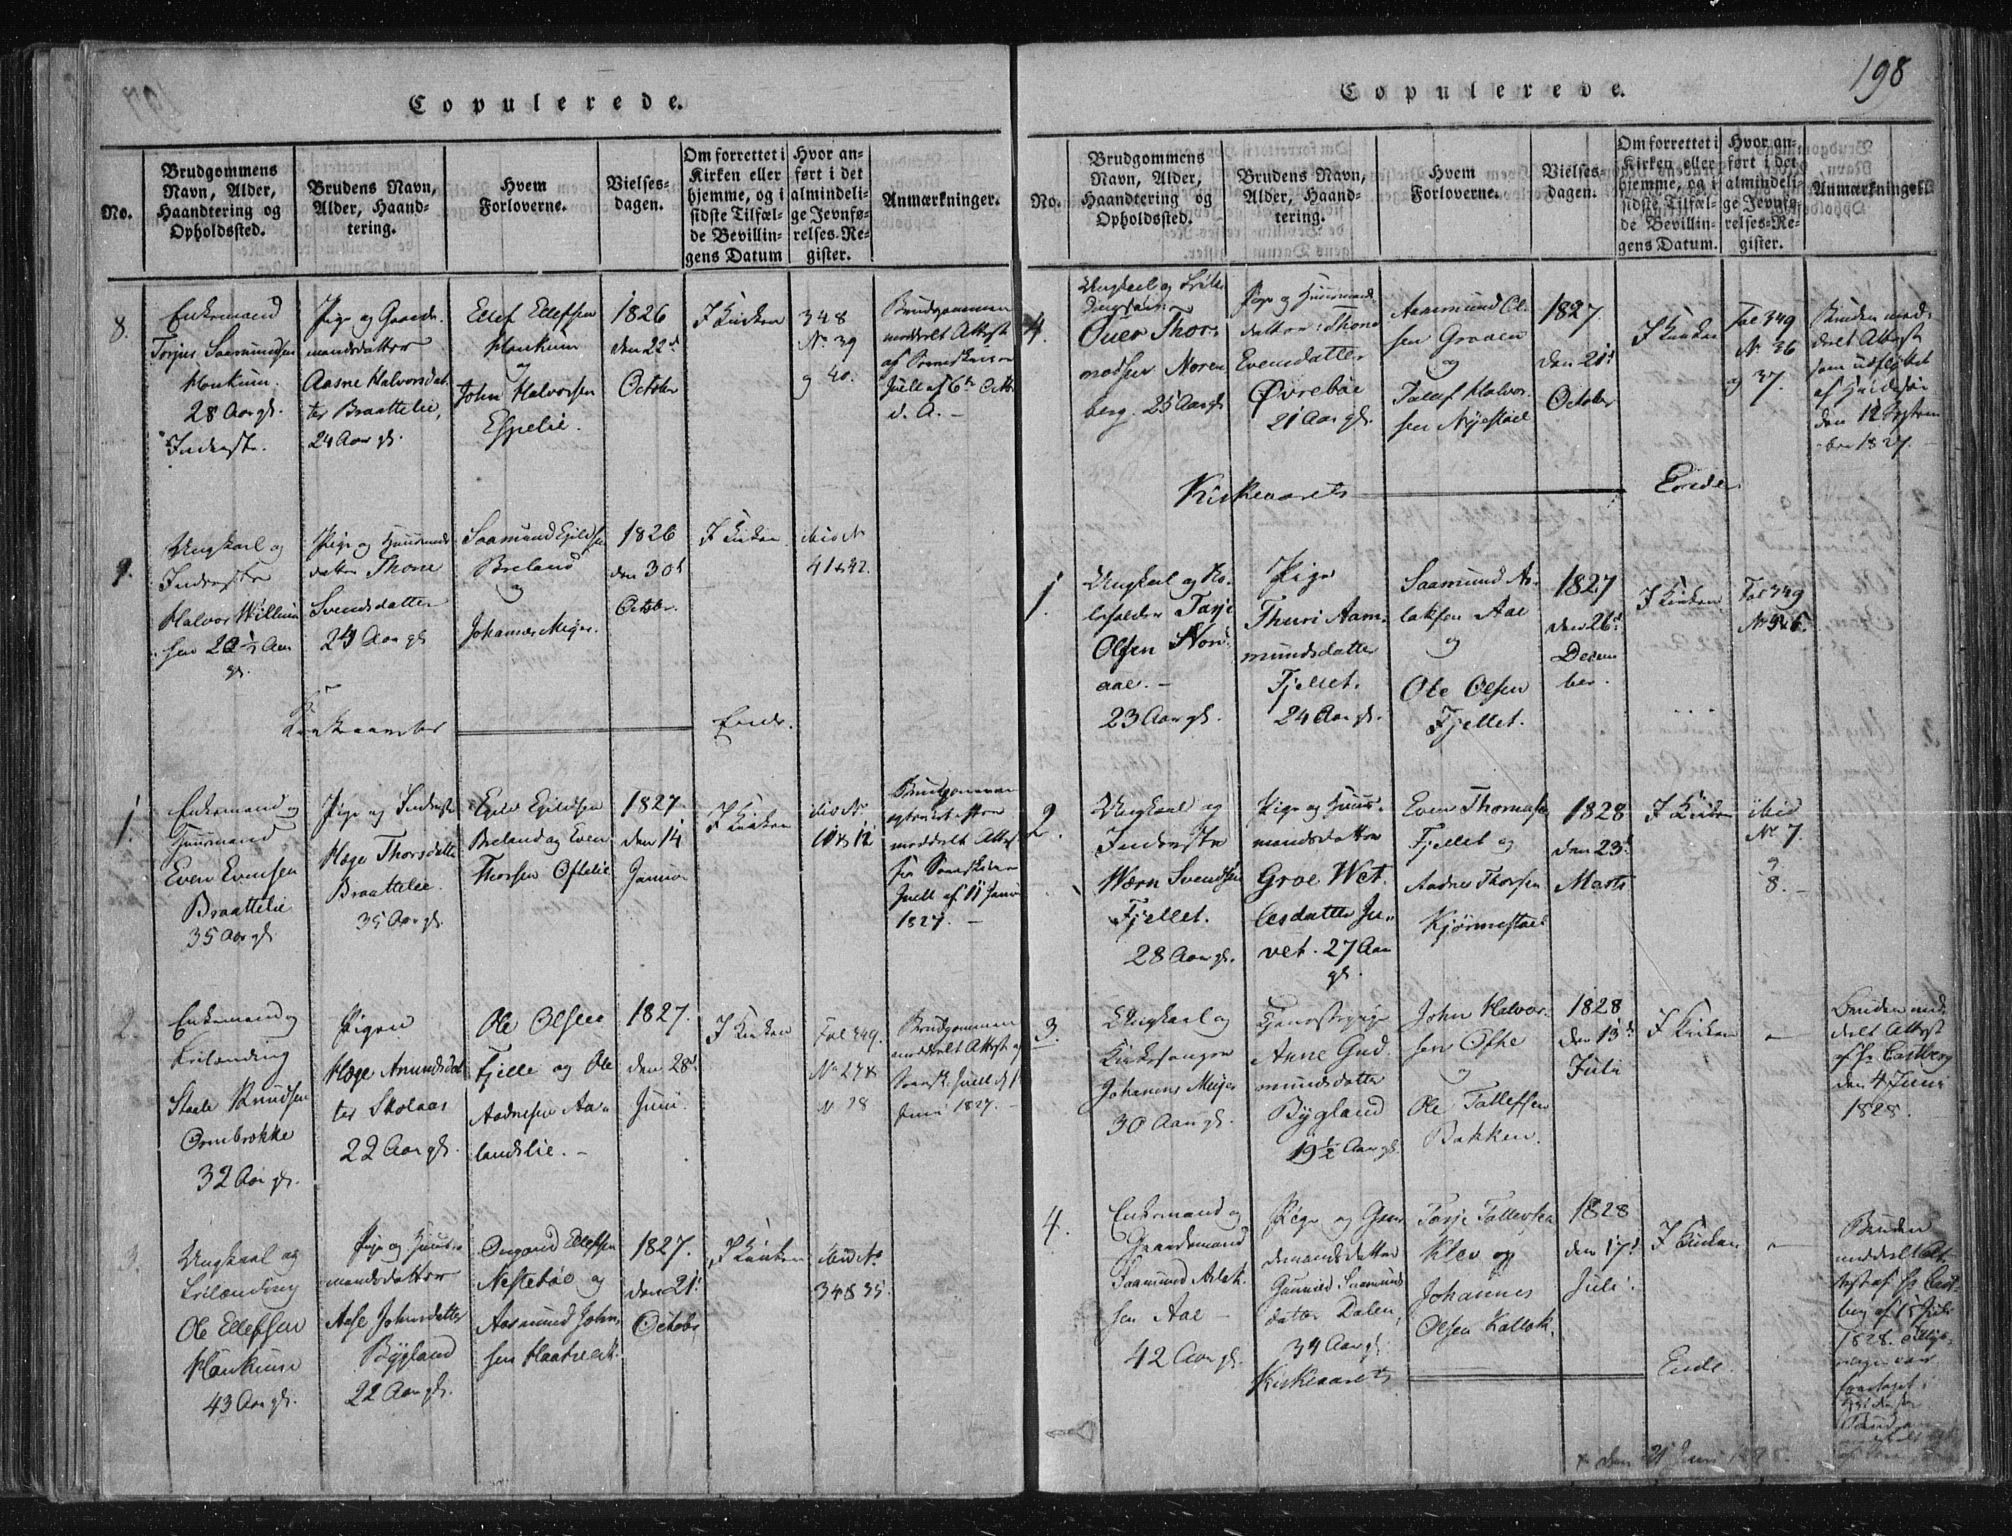 198
Copulerede.
No.
Brudgommens
Navn, Alder,
Haandtering og
Opholdssted.
Brudens Navn,
Alder, Haand-
tering.
Hvem
Forloverne.
Vielses-
dagen.
Om forrettet i
Kirken eller
hjemme, og i
sidste Tilfæl-
de Bevillin-
gens Datum
Hvor an-
ført i det
almindeli-
ge Jevnfø-
relses-Re-
gister.
Anmærkninger.
8.
Enkemand
Torjus Saamundsen
Haukum.
28 Aar gl.
Inderste.
Pige og Gaard-
mandsdatter
Aasne Halvorsdat-
ter Braattelie,
24 Aar gl.
Ellef Ellefsen
Haukum
og
John Halvorsen
Espelie.
1826
den 22d
October
I Kirken
348
No 39
og 40.
Brudgommen
meddelt Attest
af
Juell af 6te Octb.
d. A. -
9.
Ungkarl og
Inderste
Halvor Willum
sen 22 1/2 Aar
gl.
Pige og Huusmands
datter Thone
Svendsdatter
24 Aar gl.
Saamund Egildsen
Breland
og
Johannes Meijer.
1826
den 30t
Octobr.
I Kirken
ibid No
41 & 42.
Kirkeaarets Ende.
1.
Enkemand og
Huusmand
Even Evensen
Braattelie
35 Aar gl.
Pige og Inderste
Hæge Thorsdatter
Braattelie.
35 Aar gl.
Egild Egildsen
Breland og Even
Thorsen Oftelie
1827
den 14
Januar
I Kirken
ibid No
11 & 12
Brudgommen
meddelt Attest
fra
Juell af 11 Januar
1827. -
2.
Enkemand og
Leilænding
Staale Knudsen
Ormbrekke
32 Aar gl.
Pigen
Hæge Amundsdat
ter Skolaas
22 Aar gl.
Ole Olsen
Fjelle og Ole
Aadnesen Aa-
landslie. -
1827.
den 28d
Juni.
I Kirken
Fol 349.
No 27 &
N 28
Brudgommen
meddelt Attest af
Juell d 1
Juni 1827. -
3.
Ungkarl og
Leilænding
Ole Ellefsen
Haukum
43 Aar gl.
Pige og Huus-
mandsdatter
Aase Johnsdatter
Bygland
22 Aar gl.
Ongund Ellefsen
Nesteböe og
Aasmund John-
sen
1827.
den 21d
Octobr
I Kirken
ibid No
34 & 35.
Copulerede.
No.
Brudgommens
Navn, Alder,
Haandtering og
Opholdssted.
Brudens Navn,
Alder, Haand-
tering.
Hvem
Forloverne.
Vielses-
dagen.
Om forrettet i
Kirken eller
hjemme, og i
sidste Tilfæl-
de Bevillin-
gens Datum.
Hvor an-
ført i det
almindeli-
ge Jevnfø-
relses-Re-
gister.
Anmærkninger.
4.
Ungkarl og
Over Thor-
modsen Noren
berg. 25 Aar gl.
Pige og Huusmands
datter Thone
Evensdatter
Øvreböe
21 Aar gl.
Aasmund Ol-
sen Graaen
og
Tallef Halvor
sen Nyestad
1827
den 21d
October
I Kirken
Fol 349
No 36
og 37.
Bruden med-
delt Attest
som udflyttet
af
den 12 Septem
ber 1827. -
Kirkeaarets Ende
1.
Ungkarl og
Tarje
Olsen Nord
aae. -
23 Aar gl.
Pige
Thuri Aam-
mundsdatter
Fjellet.
24 Aar gl.
Saamund As-
laksen Aae
og
Ole Olsen
Fjellet.
1827
den 26d
Decem
ber.
I Kirken
Fol 349
2.
Ungkarl og
Inderste
Wærn Svendsen
Fjellet.
28 Aar gl.
Pige og Huus-
mandsdatter
Groe Wet-
lesdatter Ju-
vet. 27 Aar
gl.
Even Thomesen
Fjellet og
Aadnes Thorsen
Kjörmestad
1828
den 23d
Marts
I Kirken
ibid
No 7.
og
8. -
3.
Ungkarl og
Kirkesanger
Johannes Meijer
30 Aar gl.
Tjenestepige
Anne Gud-
mundsdatter
Bygland
19 1/2 Aar gl.
John Halvor-
sen Ofte
og
Ole Tallefsen
Bakken.
1828
den 13d
Juli
I Kirken
-
Bruden med
delt Attest
af Hr Castberg
den 4 Juni
1828. -
4.
Enkemand og
Gaardmand
Saamund Aslak-
sen Aae -
42 Aar gl.
Pige og Gaar
demandsdatter
Gunnild Saamunds
datter Dalen,
39 Aar gl.
Tarje Tallevsen
Klev og
Johannes
Olsen
1828
den 17d
Juli.
I Kirken
-
Bruden
meddelt At-
test af Hr Cast-
berg af 15 Juli
1828.
Kirkeaarets Ende.
den 21 Juni